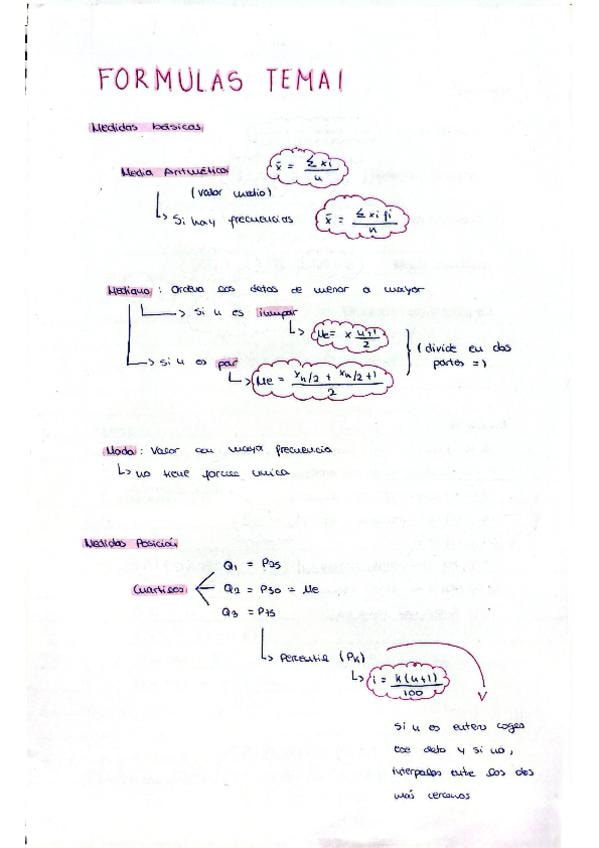 FORMULAS TEMA 1
Medidas básicas
Media Aritmética x̄ = Σxi / n
(valor medio)
↳ Si hay frecuencias x̄ = Σxifi / n
Mediana: Ordena los datos de menor a mayor
→ Si n es impar
↳ Me = x n+1 / 2
(divide en dos partes =)
→ Si n es par
↳ Me = xn/2 + xn/2+1 / 2
Moda: Valor con mayor frecuencia
↳ no tiene porque unica
Medidas Posición
Q1 = P25
Cuartiles Q2 = P50 = Me
Q3 = P75
↳ Percentil (Pk)
↳ i = k(n+1) / 100
Si n es entero coges
ese dato y si no,
interpolas entre los dos
más cercanos